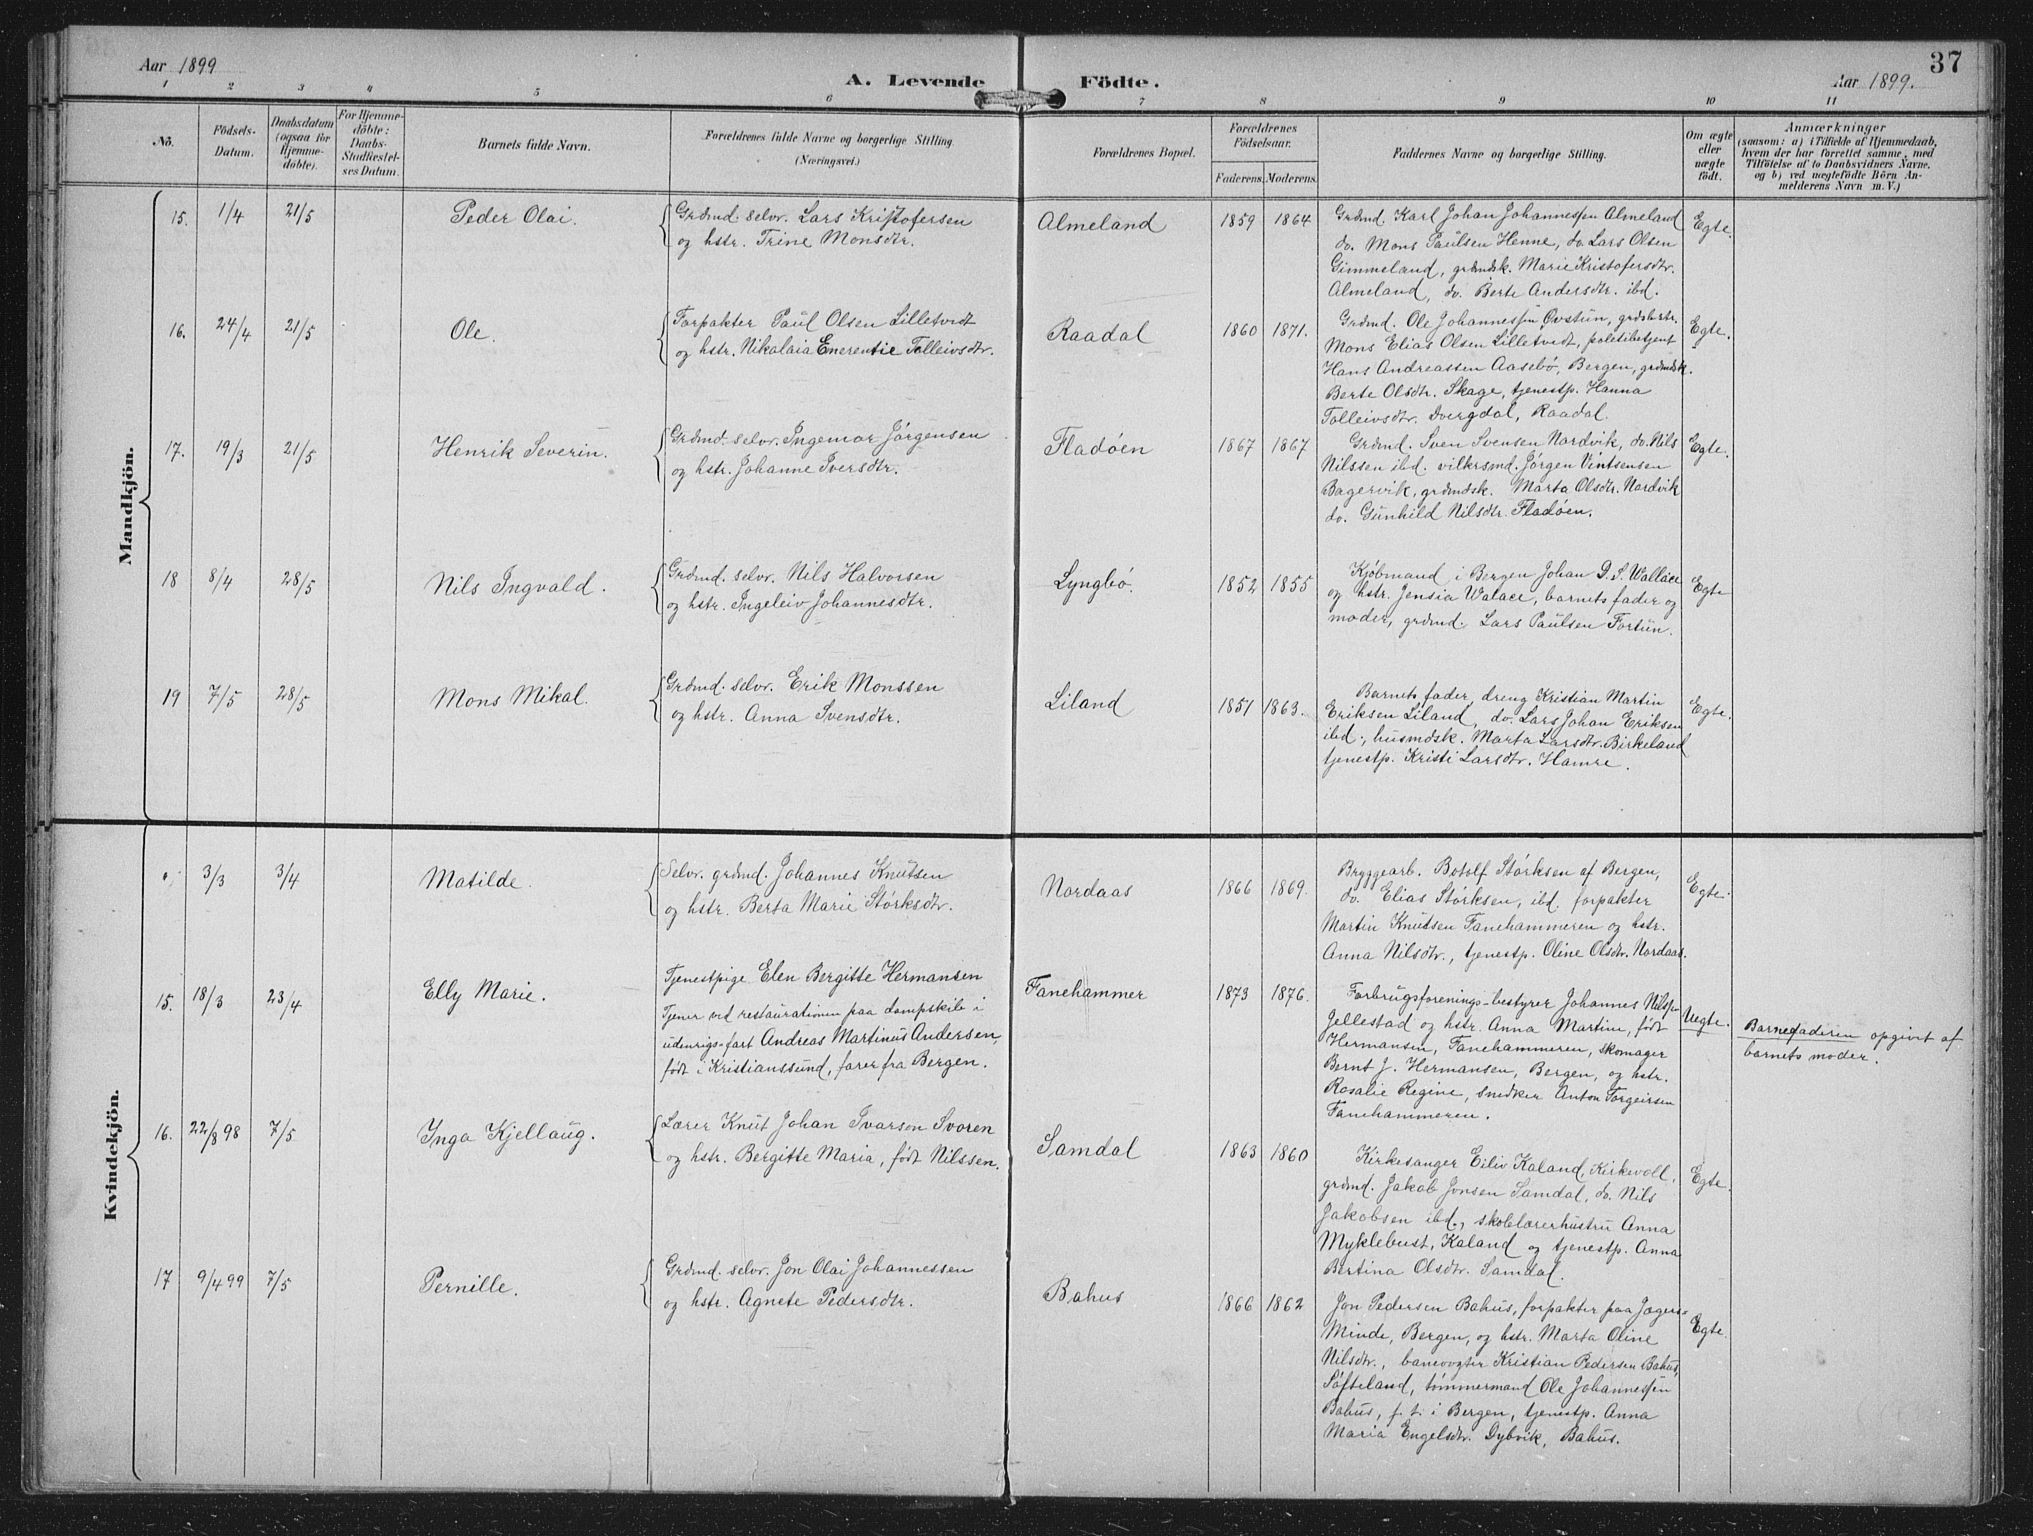 37
Aar 1899
A. Levende Födte.
Aar 1899.
1 2 3 4 5 6 7 8 9 10 11
No.
Födsels-
Datum.
Daabsdatum
(ogsaa for
Hjemme-
döbte).
For Hjemme-
döbte:
Daabs-
Stadfæstel-
ses Datum.
Barnets fulde Navn.
Forældrenes fulde Navne og borgerlige Stilling
(Næringsvei.)
Forældrenes Bopæl.
Forældrenes
Födselsaar.
Faderens. Moderens.
Faddernes Navne og borgerlige Stilling.
Om ægte
eller
uægte
födt.
Anmærkninger
(saasom: a) i Tilfælde af Hjemmedaab,
hvem der har forrettet samme, med
Tilföielse af to Daabsvidners Navne.
og b) ved uægtefödte Börn An-
melderens Navn m. V.)
Mandkjön.
15. 1/4 21/5 Peder Olai.
Grdmd. selv. Lars Kristofersen
og hstr. Trine Monsdtr.
Almeland 1859 1864
Grdmd. Karl Johan Johannessen Almeland
do. Mons Paulsen Henne, do. Lars Olsen
Gimmeland, grdmdsk. Marie Kristofersdtr.
Almeland, do. Berte Andersdtr. ibd.
Egte.
16. 24/4 21/5 Ole.
Forpakter Paul Olsen Lilletvedt
og hstr. Nikolaia Enerentie Tolleivsdtr.
Raadal 1860 1871.
Grdmd. Ole Johannessen Øvstun, grdbrstr.
Mons Elias Olsen Lilletvedt, politibetjent
Hans Andreassen Aasebø, Bergen, grdmdsk.
Berte Olsdtr. Skage, tjenestp. Hanna
Tolleivsdtr. Dvergdal, Raadal.
Egte.
17. 19/3 21/5 Henrik Severin.
Grdmd. selv. Ingemar Jörgensen
og hstr. Johanne Iversdtr.
Fladöen 1867 1867
Grdmd. Sven Svensen Nordvik, do. Nils
Nilssen ibd. vilkrsmd. Jörgen Vintsensen
Bagervik, grdmdsk. Marta Olsdtr. Nordvik
do. Gunhild Nilsdtr. Fladöen.
Egte.
18 8/4 28/5 Nils Ingvald.
Grdmd. selv. Nils Halvorsen
og hstr. Ingeleiv Johannesdtr.
Lyngbö. 1852 1855
Kjöbmand i Bergen Johan D. S. Wallace
og hstr. Jensia Walace, barnets fader og
moder, grdmd. Lars Paulsen Fortun.
Egte
19 7/5 28/5 Mons Mikal.
Grdmd. selv. Erik Monssen
og hstr. Anna Svensdtr.
Liland 1851 1863.
Barnets fader, dreng Kristian Martin
Eriksen Liland, do. Lars Johan Eriksen
ibd., husmdsk. Marta Larsdtr. Birkeland
tjenestp. Kristi Larsdtr. Hamre.
Egte.
Kvindekjön.
3/3 3/4 Matilde.
Selv. grdmd. Johannes Knutsen
og hstr. Berta Marie Störksdtr.
Nordaas 1866 1869.
Bryggearb. Botolf Störksen af Bergen,
do. Elias Störksen, ibd. forpakter
Martin Knudsen Fanehammeren og hstr.
Anna Nilsdtr., tjenestp. Oline Olsdtr. Nordaas.
Egte.
15. 18/3 23/4 Elly Marie.
Tjenestpige Elen Bergitte Hermansen
Tjener ved restaurationen paa dampskib i
udenrigs-fart Andreas Martinus Andersen,
födt i Kristianssund, farer fra Bergen.
Fanehammer 1873 1876.
Forbrugsforenings-bestyrer Johannes Nilss.
Jellestad og hstr. Anna Martine, födt
Hermansen, Fanehammeren, skomager
Bernt J. Hermansen, Bergen, og hstr.
Rosalie Regine, snedker Anton Torgeirsen
Fanehammeren.
Uegte.
Barnefaderen opgivet af
barnets moder.
16. 22/8 98 7/5 Inga Kjellaug.
Lærer Knut Johan Ivarson Svoren
og hstr. Bergitte Maria, födt Nilssen.
Samdal 1863 1860
Kirkesanger Eiliv Kaland, Kirkevoll,
grdmd. Jakob Jonsen Samdal, do. Nils
Jakobsen ibd., skolelærerhustru Anna
Myklebust, Kaland og tjenestp. Anna
Bertina Olsdtr. Samdal.
Egte.
17 9/4 99 7/5 Pernille.
Grdmd. selv. Jon Olai Johannessen
og hstr. Agnete Pedersdtr.
Bahus 1866 1862
Jon Pedersen Bahus, forpakter paa Jægers-
Minde, Bergen, og hstr. Marta Oline
Nilsdtr., banevogter Kristian Pedersen Bahus,
Söfteland, tömmermand Ole Johannessen
Bahus, f. t. i Bergen, tjenestp. Anna
Maria Engelsdtr. Dybvik, Bahus.
Egte.